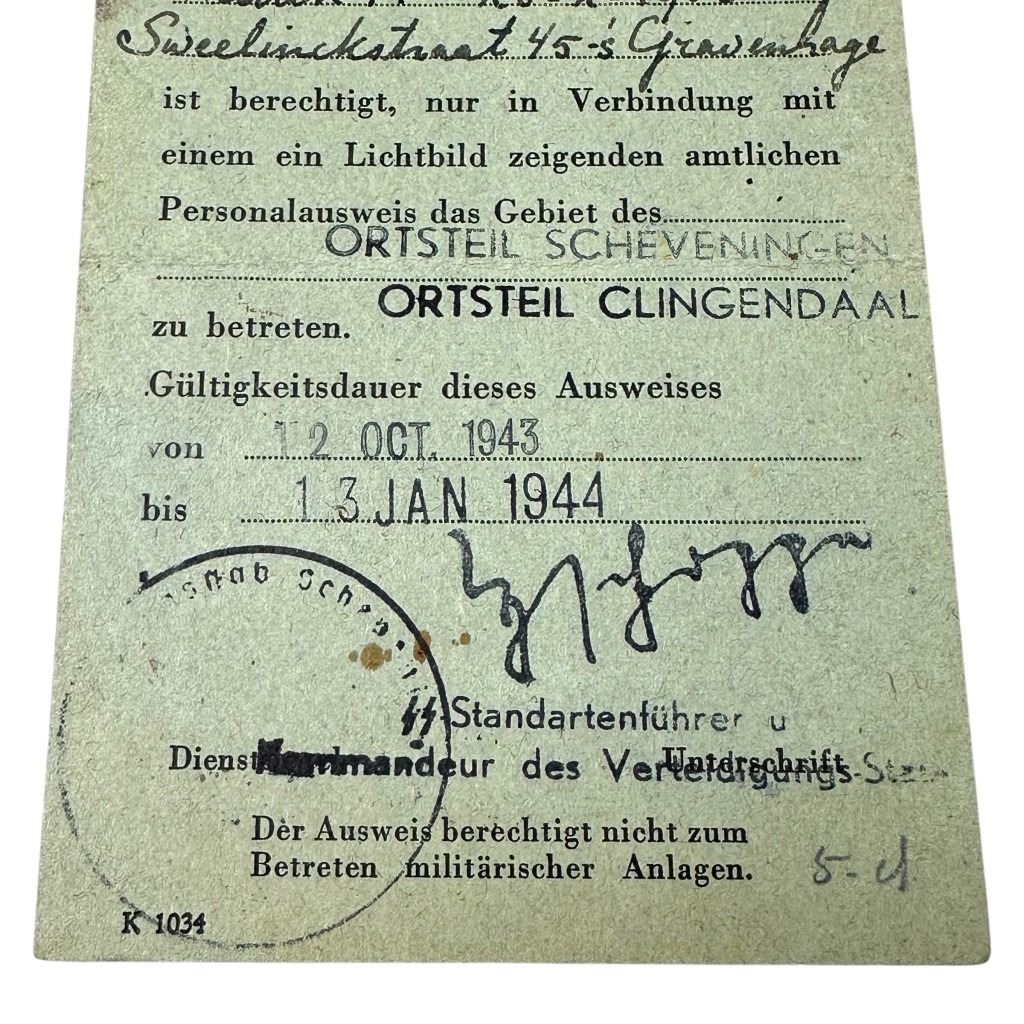 Sweelinckstraat 45-'s Gravenhage
ist berechtigt, nur in Verbindung mit
einem ein Lichtbild zeigenden amtlichen
Personalausweis das Gebiet des
ORTSTEIL SCHEVENINGEN
ORTSTEIL CLINGENDAAL
zu betreten.
Gültigkeitsdauer dieses Ausweises
von 12 OCT. 1943
bis 13 JAN 1944
SS-Standartenführer u
Dienst
Kommandeur des Verteidigungs-
Unterschrift
Der Ausweis berechtigt nicht zum
Betreten militärischer Anlagen.
K 1034